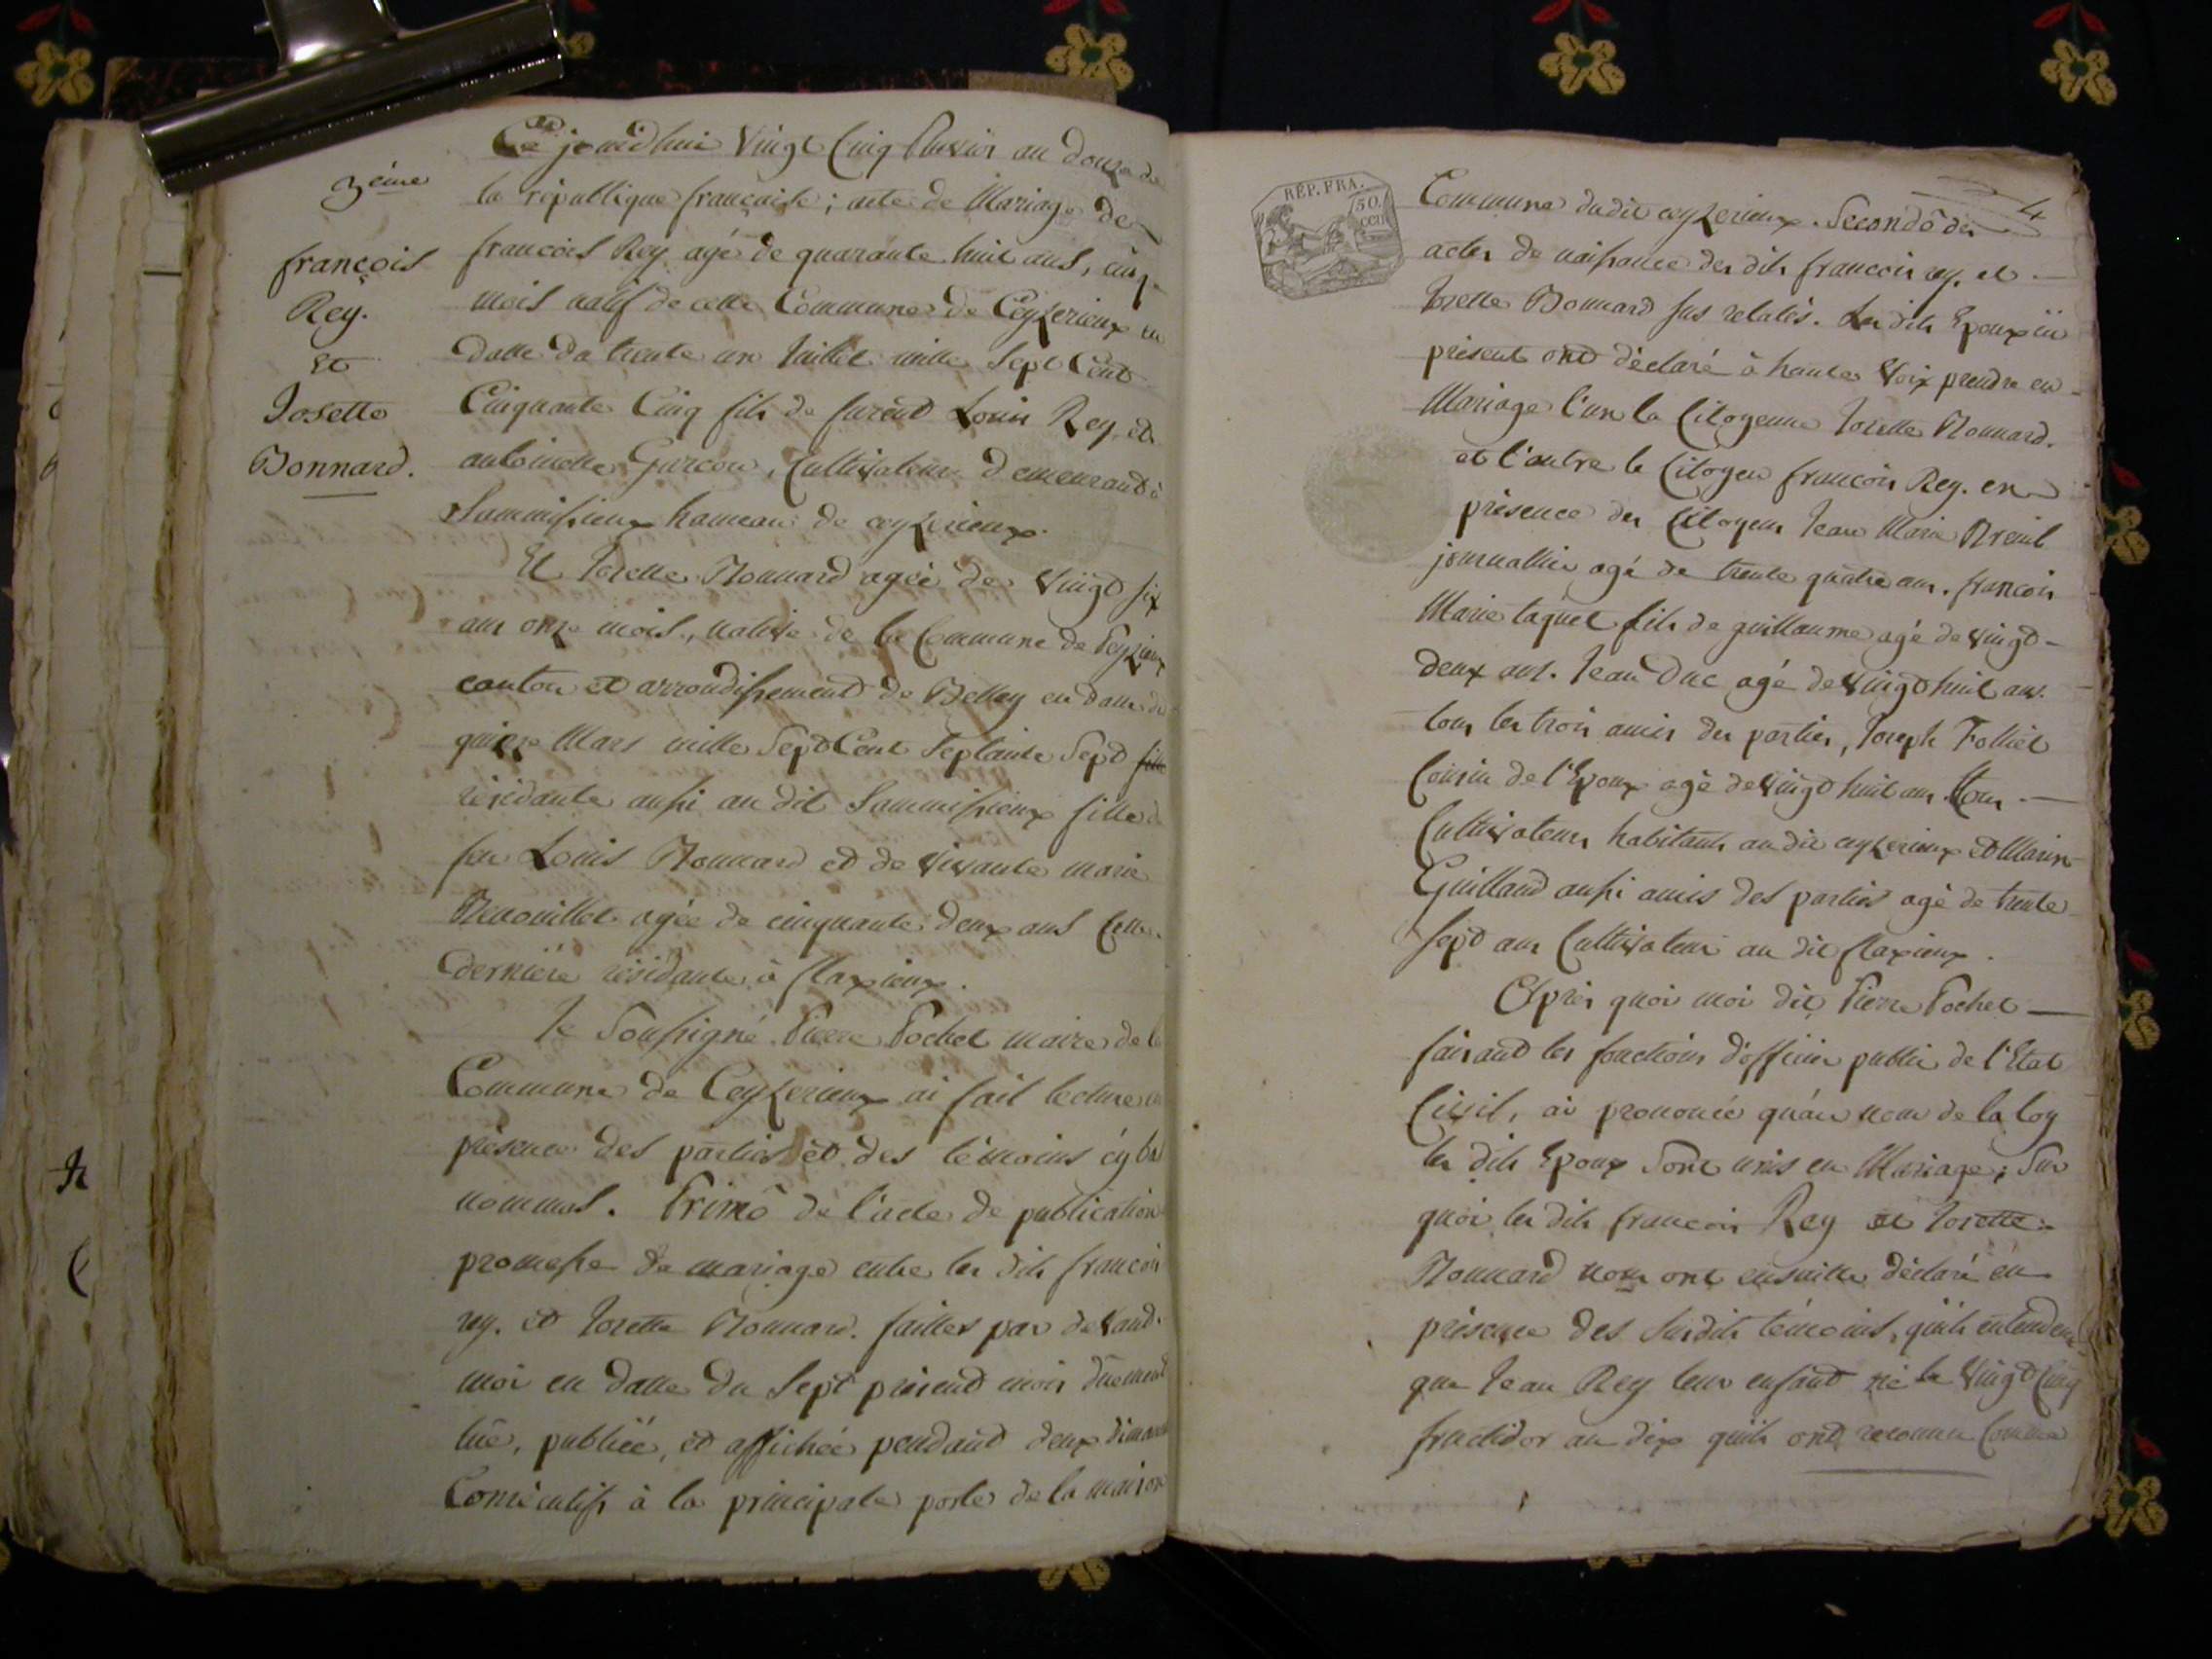 3eme
françois
Rey.
Et
Josette
Bonnard.
Ce jourdhui vingt Cinq Pluvios an douze de
la république francaise ; acte de Mariage de
francois Rey agé de quarante huit ans, cinq
mois natif de cette Commune de Ceyzerieux en
datte du trente un Juillet mille Sept Cent
Cinquante Cinq fils de furent Louis Rey et
antoinette Gurcon, Cultivateur demeurant à
Sammissieux hameau de ceyzerieux.
Et Josette Bonnard agée de vingt six
ans onze mois, native de la Commune de Peyzieux
canton et arrondissement de Belley en datte du
quinze Mars mille Sept Cent Septante Sept fille
residante aussi au dit Sammissieux fille de
feu Louis Bonnard et de vivante marie
agée de cinquante deux ans Cette
derniere residante à flaxieux.
Je Soussigné Pierre Pochet maire de la
Commune de Ceyzerieux ai fait lecture en
présence des parties et des témoins cy bas
nommés. Primô de l'acte de publication
promesse de mariage entre les dits francois
rey. et Josette Bonnard. faittes par devand.
moi en datte du Sept présent mois dûement
lûe, publiée, et affichée pendant deux dimanches
Consécutifs à la principale porte de la maison
REP. FRA.
50.
CEN
4
Commune dudit ceyzerieux. Secondô des
actes de naissance des dits francois rey. et
Josette Bonnard sus relatés. Les dits Epoux ici
présent ont déclaré à haute Voix prendre en
Mariage l'un la Citoyenne Josette Bonnard.
et l'autre le Citoyen francois Rey. en
présence des Citoyens Jean Marie
journallier agé de trente quatre ans. francois
Marie taquet fils de guillaume agé de vingt
deux ans. Jean Duc agé de vingt huit ans.
tous les trois amis des parties, Joseph Folliet
Cousin de l'Epoux agé de vingt huit ans. tous
Cultivateurs habitants au dit ceyzerieux et Marin
Guilland aussi amis des parties agé de trente
sept ans Cultivateur au dit flaxieux.
Après quoi moi dit Pierre Pochet
faisant les fonctions d'officier public de l'Etat
Civil, ai prononcé qu'au nom de la loy
les dits Epoux Sont unis en Mariage ; Sur
quoi les dits francois Rey et Josette
Bonnard nous ont ensuitte déclaré en
présence des Susdits témoins, quils entendent
que Jean Rey leur enfant né le vingt Cinq
fructidor an dix quils ont reconnu Comme